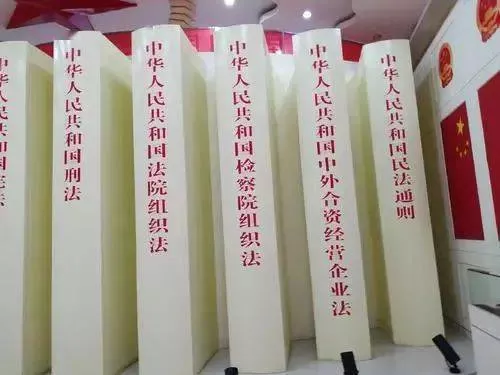 华人民共和国宪法
中华人民共和国刑法
中华人民共和国法院组织法
中华人民共和国检察院组织法
中华人民共和国中外合资经营企业法
中华人民共和国民法通则